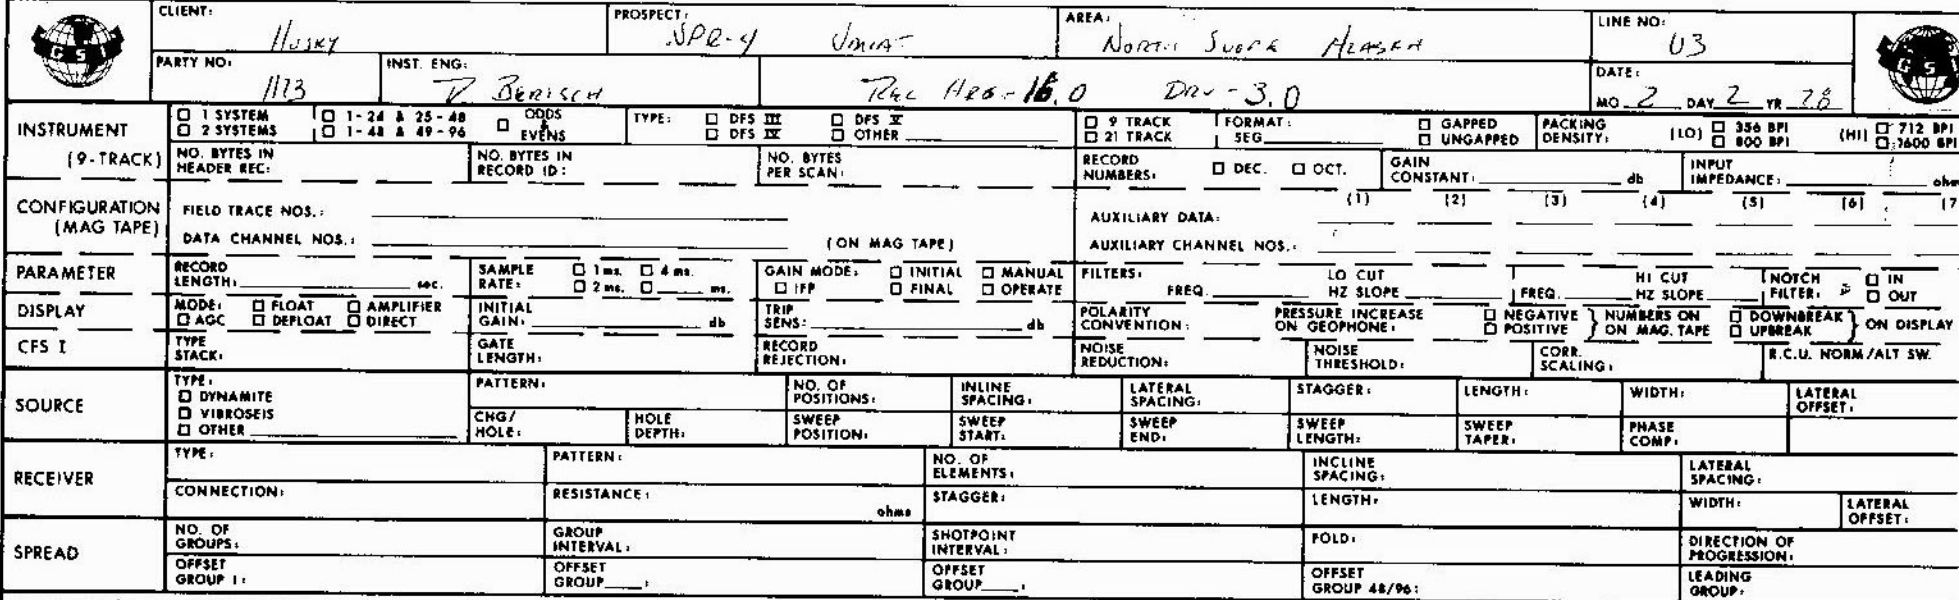 CLIENT: Husky PROSPECT: NPR-4 Umiat AREA: North Slope Alaska LINE NO: U3
GSI
GSI
PARTY NO: 1173 INST. ENG: D Berisch Rec Hrs - 16.0 Drv - 3.0 DATE: MO. 2 DAY 2 YR 78
INSTRUMENT (9-TRACK) □ 1 SYSTEM □ 1-24 & 25-48 □ ODDS & EVENS TYPE: □ DFS III □ DFS V □ 9 TRACK FORMAT: □ GAPPED PACKING DENSITY: (LO) □ 356 BPI (HI) □ 712 BPI
□ 2 SYSTEMS □ 1-48 & 49-96 □ DFS IV □ OTHER □ 21 TRACK SEG □ UNGAPPED □ 800 BPI □ 1600 BPI
NO. BYTES IN HEADER REC: NO. BYTES IN RECORD ID: NO. BYTES PER SCAN: RECORD NUMBERS: □ DEC. □ OCT. GAIN CONSTANT: db INPUT IMPEDANCE: ohms
CONFIGURATION (MAG TAPE) FIELD TRACE NOS.: AUXILIARY DATA: (1) (2) (3) (4) (5) (6) (7
DATA CHANNEL NOS.: (ON MAG TAPE) AUXILIARY CHANNEL NOS.:
PARAMETER RECORD LENGTH: sec. SAMPLE RATE: □ 1 ms. □ 4 ms. □ 2 ms. □ ms. GAIN MODE: □ INITIAL □ MANUAL □ IFP □ FINAL □ OPERATE FILTERS: LO CUT FREQ. HZ SLOPE HI CUT FREQ. HZ SLOPE NOTCH FILTER: □ IN □ OUT
DISPLAY MODE: □ FLOAT □ AMPLIFIER □ AGC □ DEFLOAT □ DIRECT INITIAL GAIN: db TRIP SENS: db POLARITY CONVENTION: PRESSURE INCREASE ON GEOPHONE: □ NEGATIVE □ POSITIVE } NUMBERS ON MAG. TAPE □ DOWNBREAK □ UPBREAK } ON DISPLAY
CFS I TYPE STACK: GATE LENGTH: RECORD REJECTION: NOISE REDUCTION: NOISE THRESHOLD: CORR. SCALING: R.C.U. NORM/ALT SW.
SOURCE TYPE: □ DYNAMITE □ VIBROSEIS □ OTHER PATTERN: NO. OF POSITIONS: INLINE SPACING: LATERAL SPACING: STAGGER: LENGTH: WIDTH: LATERAL OFFSET:
CHG/HOLE: HOLE DEPTH: SWEEP POSITION: SWEEP START: SWEEP END: SWEEP LENGTH: SWEEP TAPER: PHASE COMP:
RECEIVER TYPE: PATTERN: NO. OF ELEMENTS: INCLINE SPACING: LATERAL SPACING:
CONNECTION: RESISTANCE: ohms STAGGER: LENGTH: WIDTH: LATERAL OFFSET:
SPREAD NO. OF GROUPS: GROUP INTERVAL: SHOTPOINT INTERVAL: FOLD: DIRECTION OF PROGRESSION:
OFFSET GROUP 1: OFFSET GROUP : OFFSET GROUP : OFFSET GROUP 48/96: LEADING GROUP: